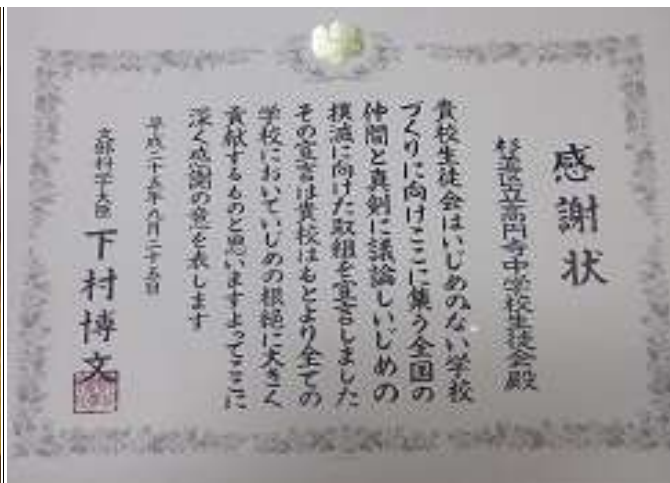 感謝状
杉並区立高円寺中学校生徒会殿
貴校生徒会はいじめのない学校
づくりに向けここに集う全国の
仲間と真剣に議論しいじめの
撲滅に向けた取組を宣言しました
その宣言は貴校はもとより全ての
学校においていじめの根絶に大きく
貢献するものと思いますよってここに
深く感謝の意を表します
平成二十五年九月二十五日
文部科学大臣 下村博文